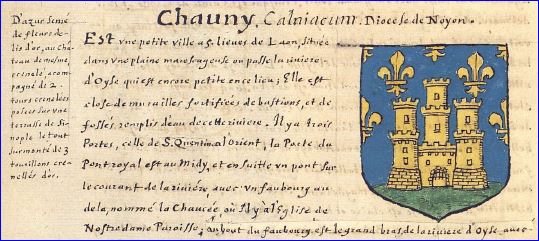 Chauny, Calniacum. Diocese de Noyon.
D'azur semé
de fleurs de
lis d'or, au Cha
teau de mesme,
crenelé, acom
pagné de 2.
tours crenelées
posées sur vne
terrasse de Si-
nople le tout
surmonté de 3
tourillons cre-
nellés d'or.
Est vne petite ville a 5. lieues de Laon, située
dans vne plaine marescageuse ou passe la riviere
d'Oyse qui est encore petite en ce lieu; Elle est
close de murailles fortifiées de bastions, et de
fossés remplis d'eau de cette riviere. Il y a trois
Portes, celle de S. Quentin a l'orient, la Porte du
Pont royal est au Midy, et en suitte vn pont sur
le courant de la riviere, avec vn faubourg au
dela, nommé la Chaucée, où Il y a l'Eglise de
Nostre dame Paroisse; au bout du faubourg est le grand bras de la riviere d'Oyse avec